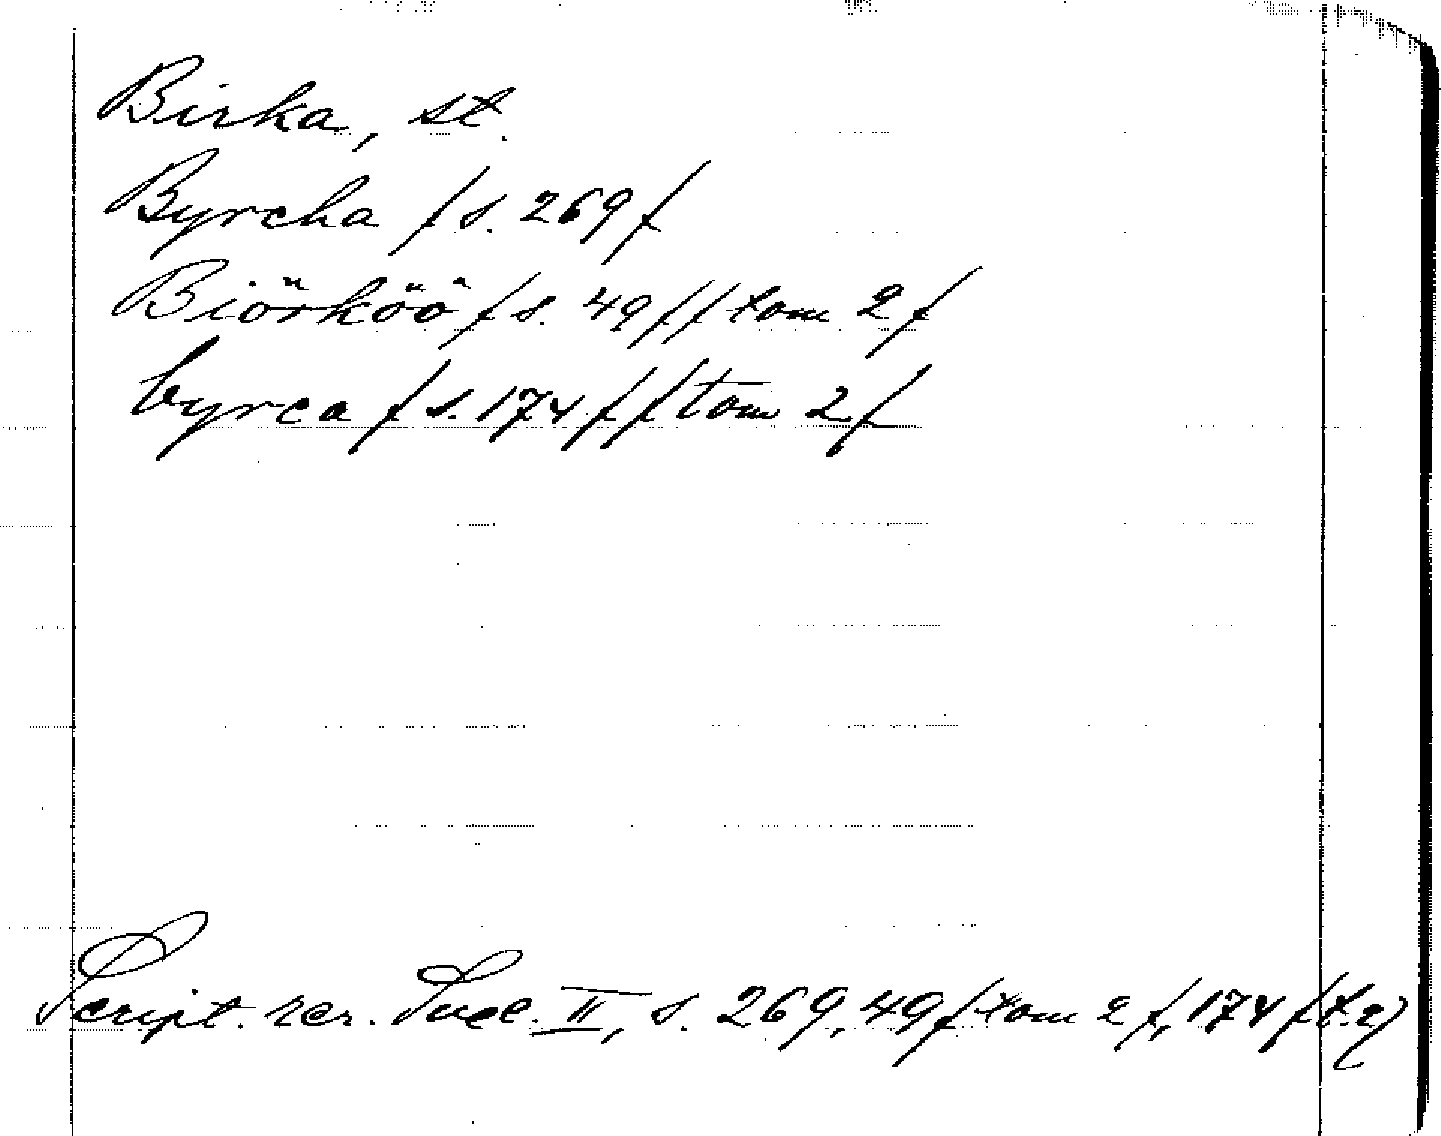 Birka, st.
Byrcha /s. 269/
Biörköö /s. 49/ /tom 2/
byrca /s. 174/ /tom 2/
Script. rer. Suec. II, s. 269, 49 /tom 2/, 174 /t. 2)